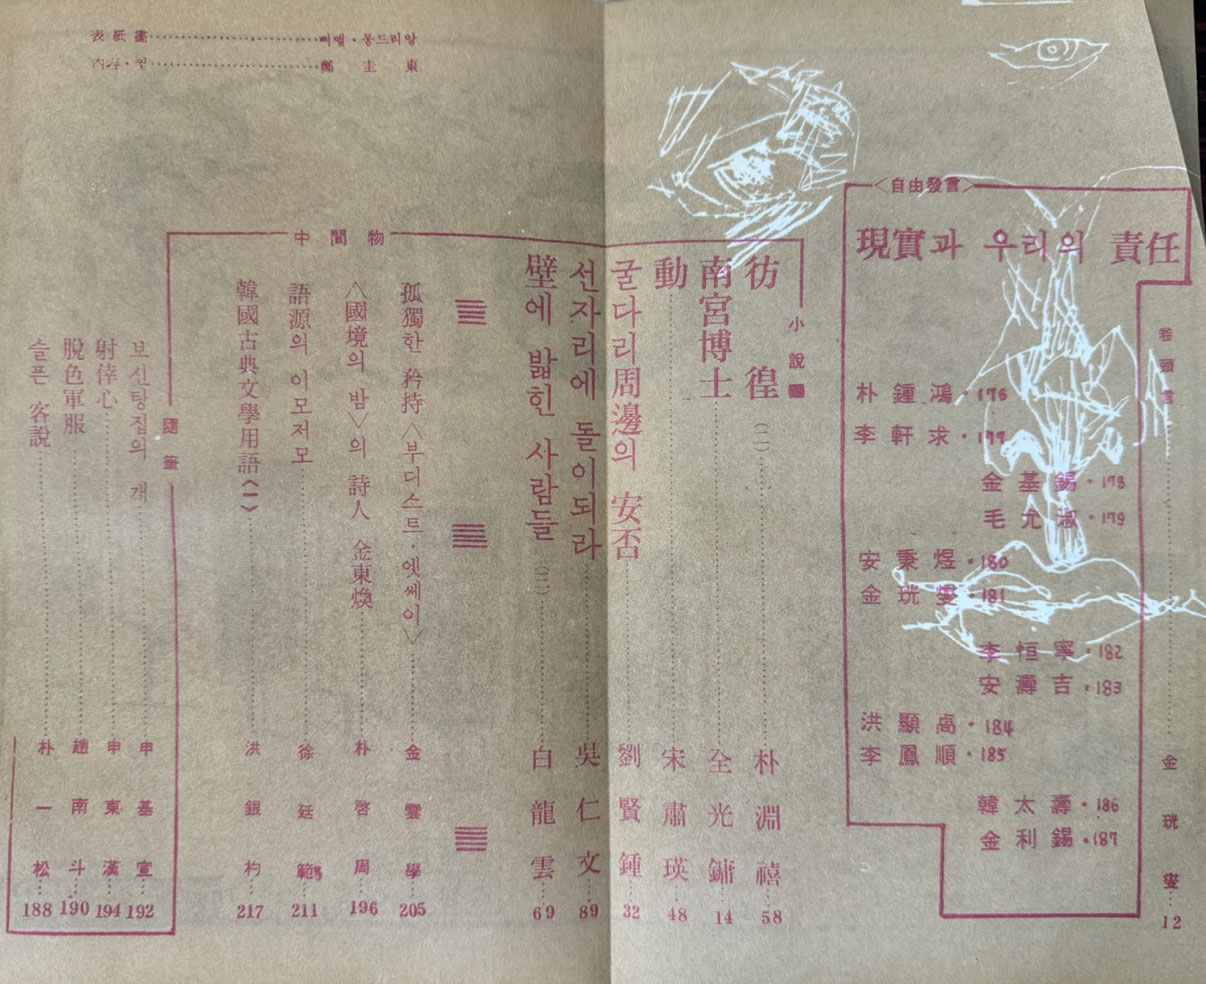 卷頭言 金珖燮 12
<自由發言>
現實과 우리의 責任
朴鍾鴻·176
李軒求·177
金基錫·178
毛允淑·179
安秉煜·180
金珖燮·181
李恒寧·182
安壽吉·183
洪顯卨·184
李鳳順·185
韓太壽·186
金利錫·187
小說
彷徨 (二) 朴淵禧 58
南宮博士 全光鏞 14
動 宋肅瑛 48
굴다리周邊의 安否 劉賢鍾 32
선자리에 돌이되라 吳仁文 89
壁에 밟힌 사람들 (二) 白龍雲 69
中間物
孤獨한 矜持<부디스트·엣쎄이> 金雲學 205
<國境의 밤>의 詩人 金東煥 朴啓周 196
語源의 이모저모 徐廷範 211
韓國古典文學用語<一> 洪銀杓 217
隨筆
보신탕집의 개 申基宣 192
射倖心 申東漢 194
脫色軍服 趙南斗 190
슬픈 客說 朴一松 188
表紙畵 삐엘·몽드리앙
鄭圭東